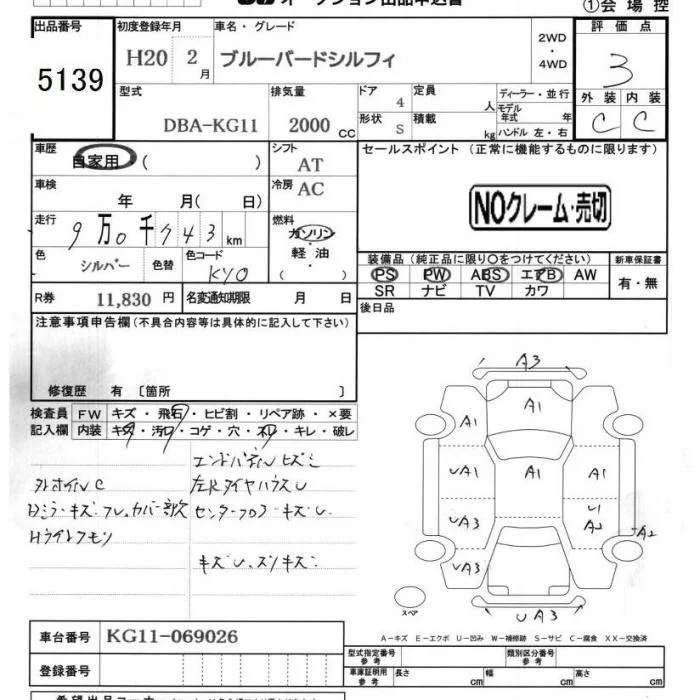 オークション出品申込書
①会場控
出品番号
5139
初度登録年月
H20 2月
車名・グレード
ブルーバードシルフィ
2WD・4WD
評価点
3
外装 内装
C C
型式
DBA-KG11
排気量
2000 CC
ドア 4
形状 S
定員 人
積載 kg
ディーラー・並行
モデル年式 年
ハンドル 左・右
車歴
自家用 ( )
シフト AT
セールスポイント (正常に機能するものに限ります)
車検
年 月( 日)
冷房 AC
NOクレーム・売切
走行
9万0千743km
燃料
ガソリン・軽油
( )
色 シルバー 色替 色コード KY0
装備品(純正品に限り○をつけてください)
新車保証書
PS PW ABS エアB AW
SR ナビ TV カワ
有・無
R券 11,830円 名変通知期限 月 日
後日品
注意事項申告欄(不具合内容等は具体的に記入して下さい)
修復歴 有〔箇所 〕
検査員記入欄
FW キズ・飛石・ヒビ割・リペア跡・×要
内装 キズ・汚レ・コゲ・穴・スレ・キレ・破レ
左R タイヤハウスU
センターフロアキズU
キズU、スリキズ
A3
A1
A1
UA1
A1
A1
UA3
U1
A2
A2
UA3
スペア
UA3
A-キズ E-エクボ U-凹み W-補修跡 S-サビ C-腐食 XX-交換済
車台番号 KG11-069026
登録番号
型式指定番号 参考
類別区分番号 参考
車庫証明用 参考
長さ cm 幅 cm 高さ cm